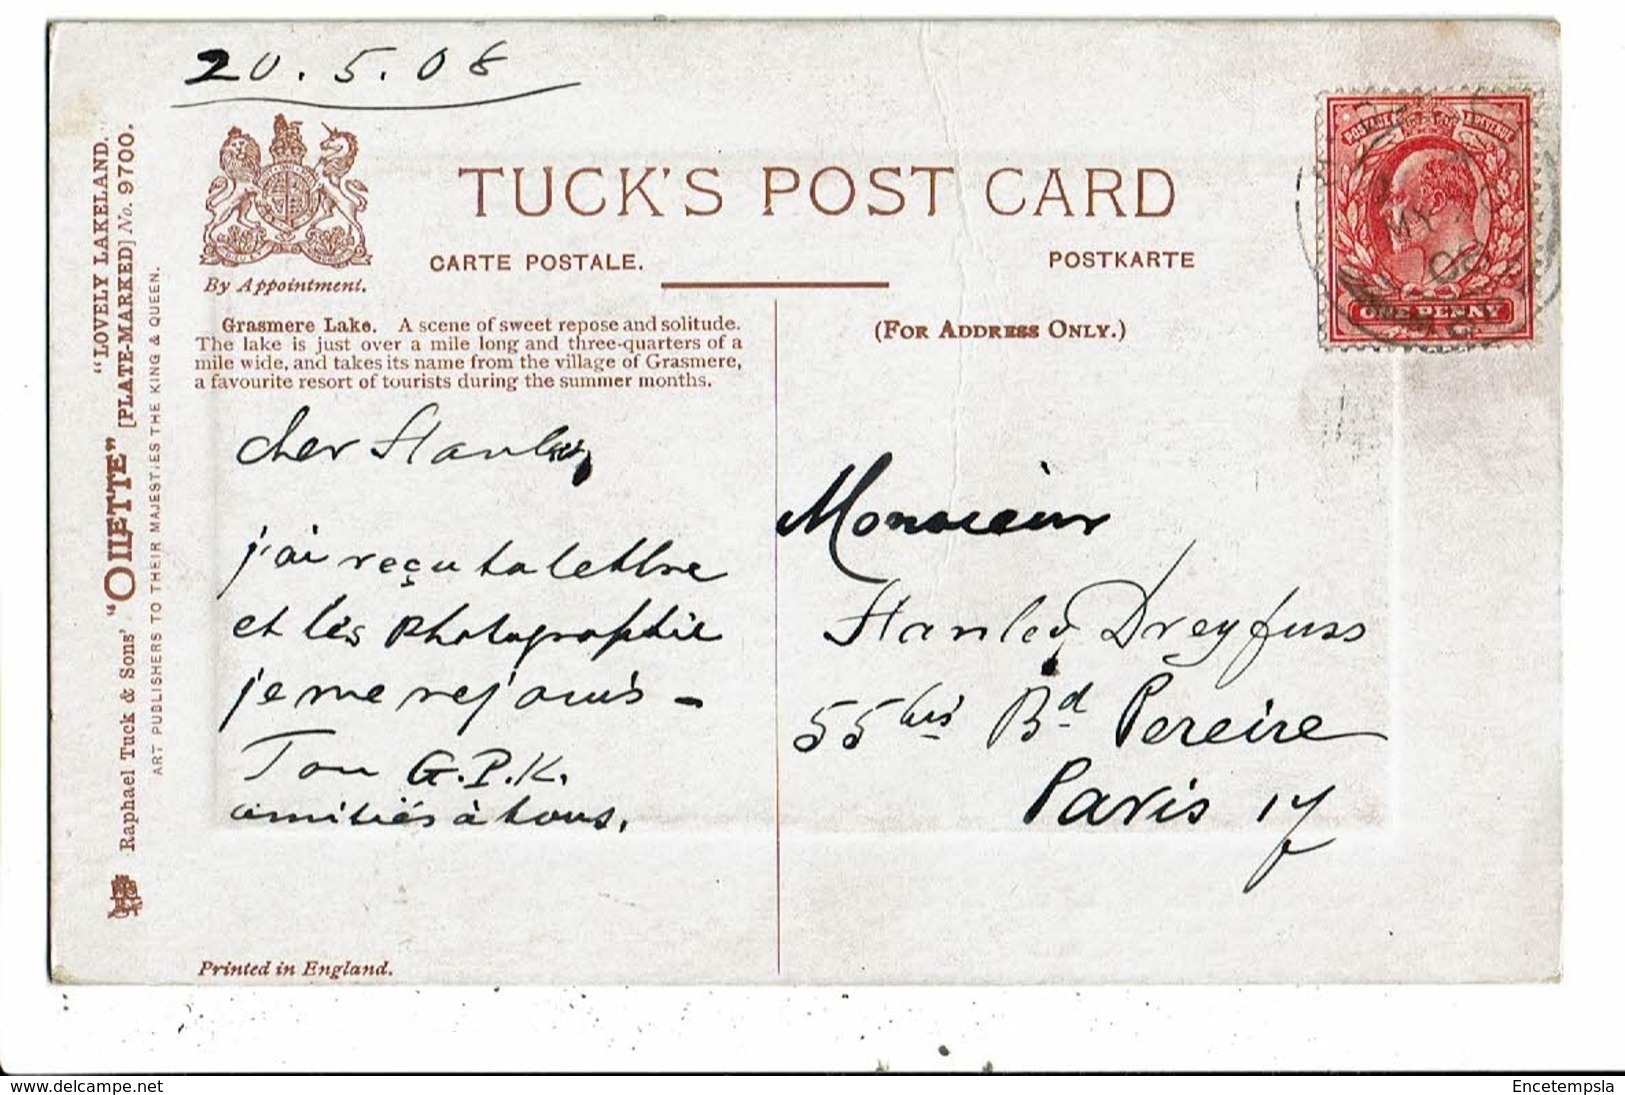 20.5.08
TUCK'S POST CARD
CARTE POSTALE.
POSTKARTE
By Appointment.
(FOR ADDRESS ONLY.)
Grasmere Lake. A scene of sweet repose and solitude.
The lake is just over a mile long and three-quarters of a
mile wide, and takes its name from the village of Grasmere,
a favourite resort of tourists during the summer months.
cher Stanley
j'ai reçu ta lettre
et les photographie
je me rejouis –
Ton G.P.K.
amitiés à tous.
Monsieur
Stanley Dreyfuss
55bis Bd Pereire
Paris 17
Printed in England.
"LOVELY LAKELAND.
Raphael Tuck & Sons' "OILETTE" [PLATE-MARKED] No. 9700.
ART PUBLISHERS TO THEIR MAJESTIES THE KING & QUEEN.
POSTAGE REVENUE
ONE PENNY
MY
08
www.delcampe.net
Encetempsla